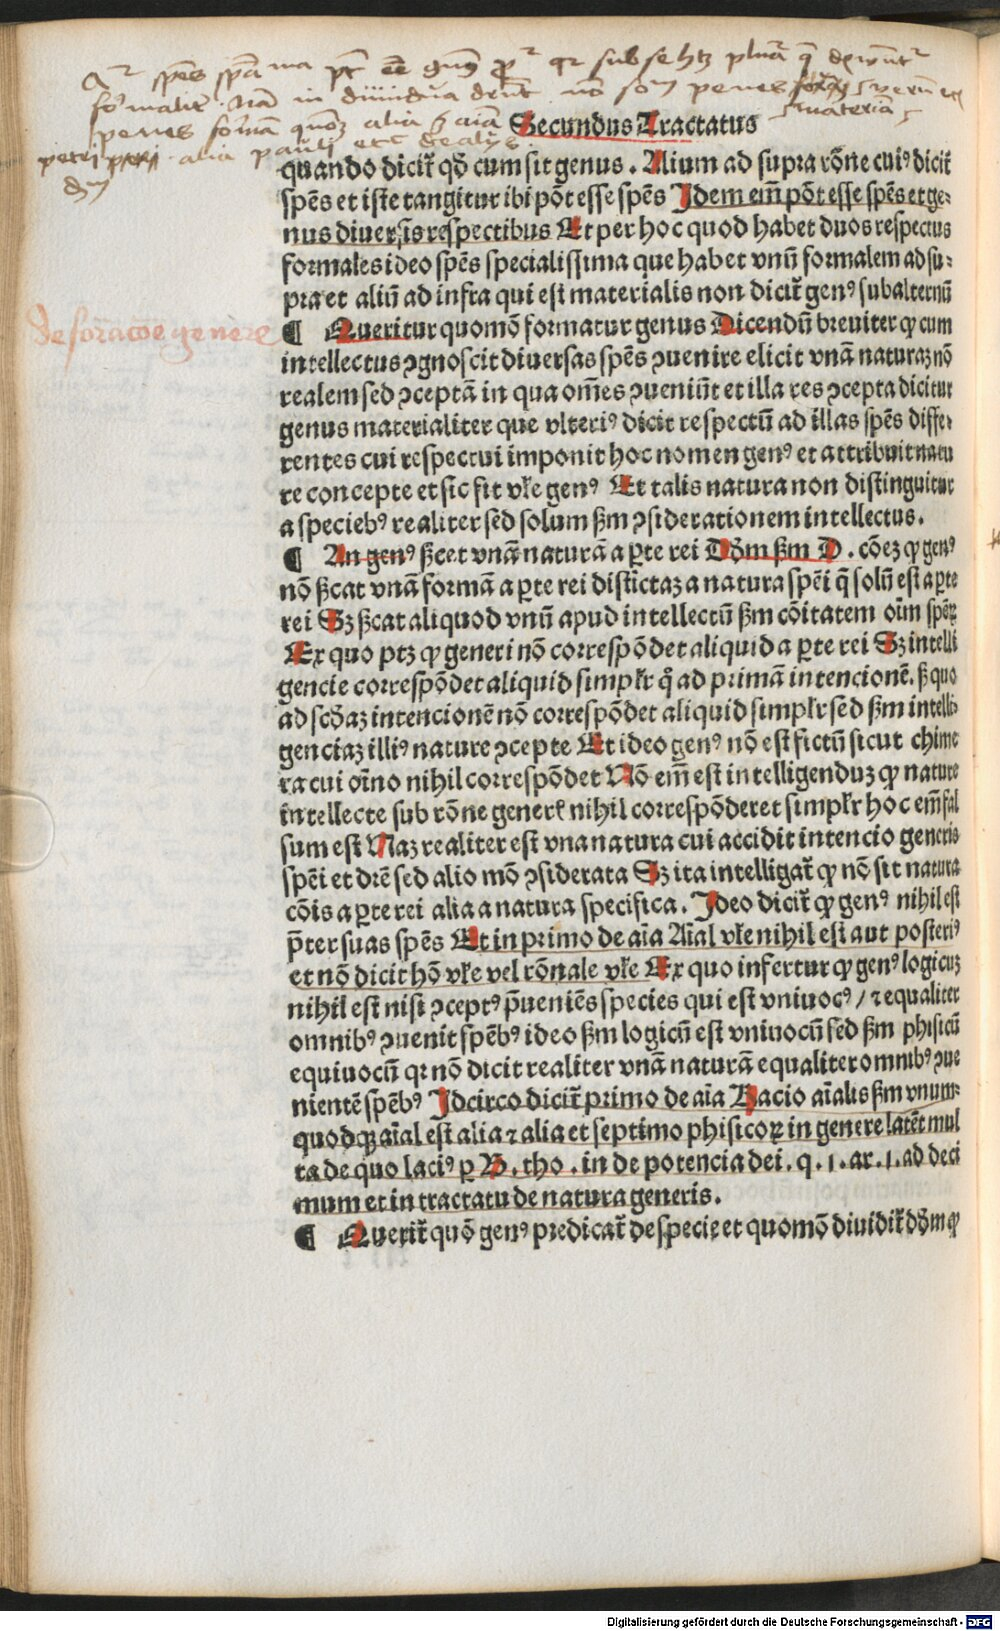 Secundus Tractatus
quando dicit᷑ qđ cum sit genus. Alium ad supra rõne cuiꝰ dicit᷑
spẽs et iste tangitur ibi põt esse spẽs Idem em̃ põt esse spẽs et ge⸗
nus diuersis respectibus Et per hoc quod habet duos respectus
formales ideo spẽs specialissima que habet vnũ formalem ad su⸗
pra et aliũ ad infra qui est materialis non dicit᷑ genꝰ subalternũ
de for̃acõe generꝭ
¶ Queritur quomõ formatur genus Dicendũ breuiter ꝙ cum
intellectus ꝯgnoscit diuersas spẽs ꝯuenire elicit vnã naturaꝫ nõ
realem sed ꝯceptã in qua om̃es ꝯueniũt et illa res ꝯcepta dicitur
genus materialiter que vlteriꝰ dicit respectũ ad illas spẽs diffe⸗
rentes cui respectui imponit hoc nomen genꝰ et attribuit natu
re concepte et sic fit vľe genꝰ Et talis natura non distinguitur
a speciebꝰ realiter sed solum ẜm ꝯsiderationem intellectus.
¶ An genꝰ ẜcet vnã naturã a ꝑte rei Dḋm ẜm D. cõeꝫ ꝙ genꝰ
nõ ẜcat vnã formã a ꝑte rei distĩctaꝫ a natura spẽi q̃ solũ est a ꝑte
rei Sꝫ ẜcat aliquod vnũ apud intellectũ ẜm cõitatem oĩm spẽꝝ
Ex quo ptꝫ ꝙ generi nõ correspõdet aliquid a ꝑte rei Sꝫ intelli
gencie correspõdet aliquid simplʳ qͦ ad primã intencionẽ. ẜ quo
ad scḋaꝫ intencionẽ nõ correspõdet aliquid simplʳ sed ẜm intelli⸗
genciaꝫ illiꝰ nature ꝯcepte Et ideo genꝰ nõ est fictũ sicut chime
ra cui oĩno nihil correspõdet Nõ em̃ est intelligenduꝫ ꝙ nature
intellecte sub rõne generꝭ nihil correspõderet simplʳ hoc em̃ fal
sum est Naꝫ realiter est vna natura cui accidit intencio generis
spẽi et dr̃e sed alio mõ ꝯsiderata Sꝫ ita intelligat᷑ ꝙ nõ sit natura
cõis a ꝑte rei alia a natura specifica. Ideo dicit᷑ ꝙ genꝰ nihil est
p̃ter suas spẽs Et in primo de aĩa Aĩal vľe nihil est aut posteriꝰ
et nõ dicit hõ vľe vel rõnale vľe Ex quo infertur ꝙ genꝰ logicuꝫ
nihil est nisi ꝯceptꝰ p̃ueniẽs species qui est vniuocꝰ / ⁊ equaliter
omnibꝰ ꝯuenit spẽbꝰ ideo ẜm logicũ est vniuocũ sed ẜm phisicũ
equiuocũ qꝛ nõ dicit realiter vnã naturã equaliter omnibꝰ ꝯue
nientẽ spẽbꝰ Idcirco dicit᷑ primo de aĩa Racio aĩalis ẜm vnum⸗
quodqꝫ aĩal est alia ⁊ alia et septimo phisicoꝝ in genere latẽt mul
ta de quo laciꝰ ꝑ B. tho. in de potencia dei. q. 1. ar. 1. ad deci
mum et in tractatu de natura generis.
¶ Querit᷑ quõ genꝰ predicat᷑ de specie et quomõ diuidit᷑ dḋm ꝙ
Digitalisierung gefördert durch die Deutsche Forschungsgemeinschaft - DFG